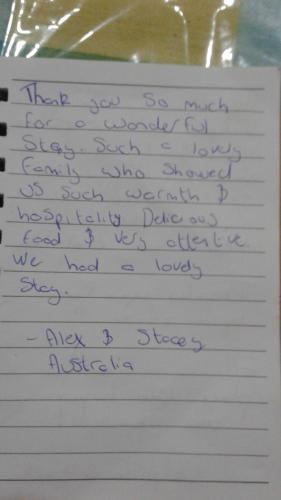 Thank you so much
for a wonderful
Stay. Such a lovely
family who showed
us such warmth &
hospitality Delicious
food & very attentive.
We had a lovely
Stay.
- Alex & Stacey
Australia